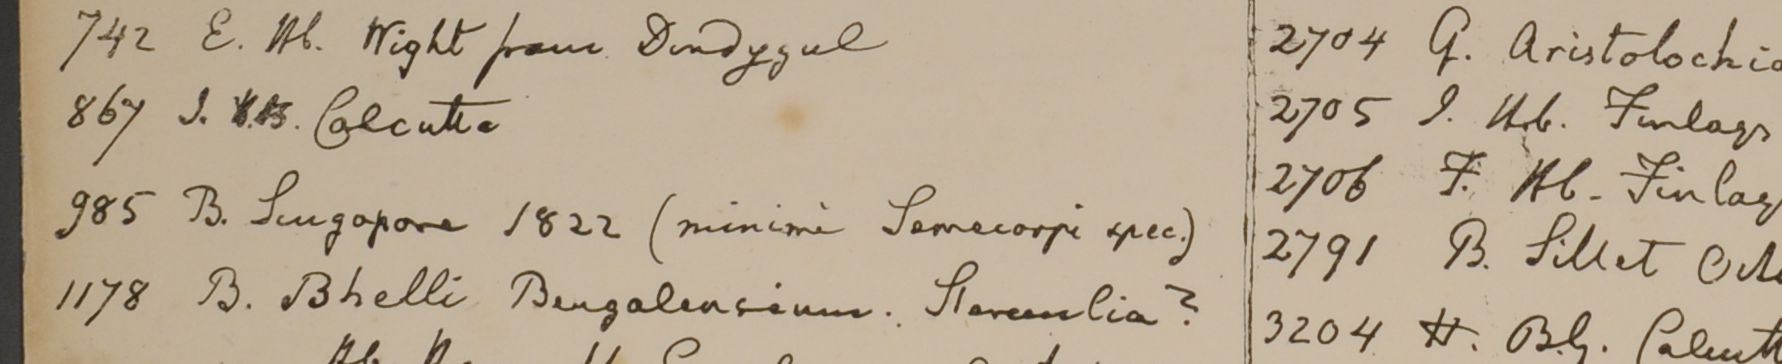 742 E. Hb. Wight from Dindygul
867 I. H.B. Calcutta
985 B. Singapore 1822 (minime Semecarpi spec.)
1178 B. Bhelli Bengalensium. Sterculia?
2704 G. Aristolochia
2705 I. Hb. Finlays
2706 F. Hb. Finlay
2791 B. Sillet
3204 H. B.G. Calcutt